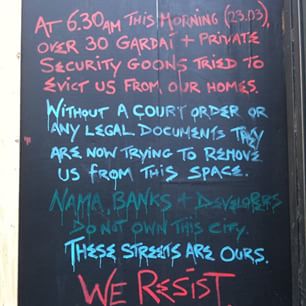 AT 6.30AM THIS MORNING (23.03),
OVER 30 GARDAÍ + PRIVATE
SECURITY GOONS TRIED TO
EVICT US FROM OUR HOMES.
WITHOUT A COURT ORDER OR
ANY LEGAL DOCUMENTS THEY
ARE NOW TRYING TO REMOVE
US FROM THIS SPACE.
NAMA, BANKS + DEVELOPERS
DO NOT OWN THIS CITY.
THESE STREETS ARE OURS.
WE RESIST